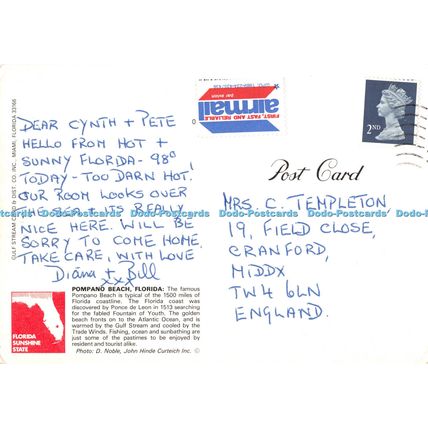 DEAR CYNTH + PETE
HELLO FROM HOT +
SUNNY FLORIDA - 98°
TODAY - TOO DARN HOT!
OUR ROOM LOOKS OVER
THE SEA. ITS REALLY
NICE HERE. WILL BE
SORRY TO COME HOME.
TAKE CARE, WITH LOVE
Diana + Bill
xxx
airmail
FIRST, FAST AND RELIABLE
par avion
2ND
Post Card
MRS. C. TEMPLETON
19, FIELD CLOSE,
CRANFORD,
MIDDX
TW4 6LN
ENGLAND.
Dodo-Postcards Dodo-Postcards Dodo-Postcards Dodo-Postcards
POMPANO BEACH, FLORIDA: The famous
Pompano Beach is typical of the 1500 miles of
Florida coastline. The Florida coast was
discovered by Ponce de Leon in 1513 searching
for the fabled Fountain of Youth. The golden
beach fronts on to the Atlantic Ocean, and is
warmed by the Gulf Stream and cooled by the
Trade Winds. Fishing, ocean and sunbathing are
just some of the pastimes to be enjoyed by
resident and tourist alike.
Photo: D. Noble, John Hinde Curteich Inc. ©
FLORIDA
SUNSHINE
STATE